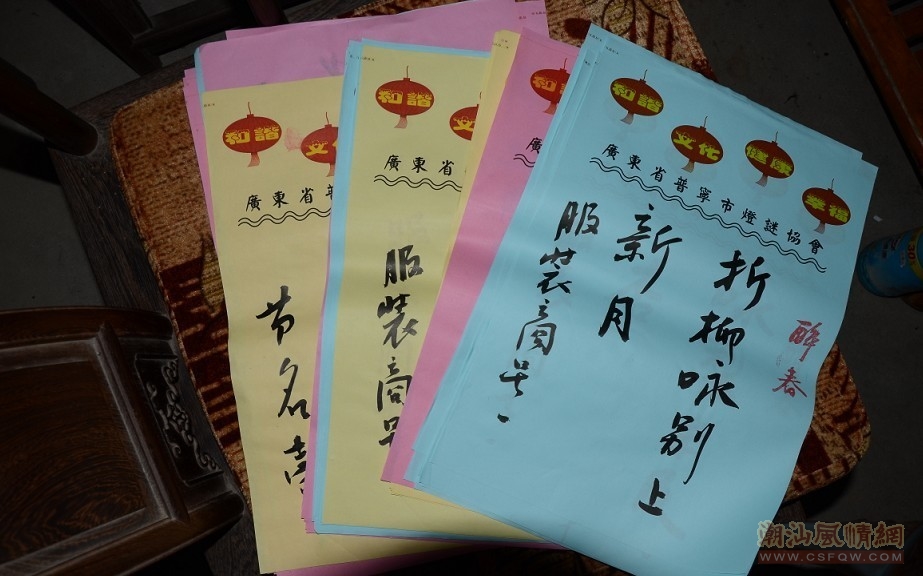 和諧
文化
健康
幸福
廣東省普寧市燈謎協會
醉春
折柳咏别上
新月
服装商号一
和諧
和諧
文
廣東省
服装商号
和諧
文化
廣東省普
节名
潮汕風情網
WWW.CSFQW.COM